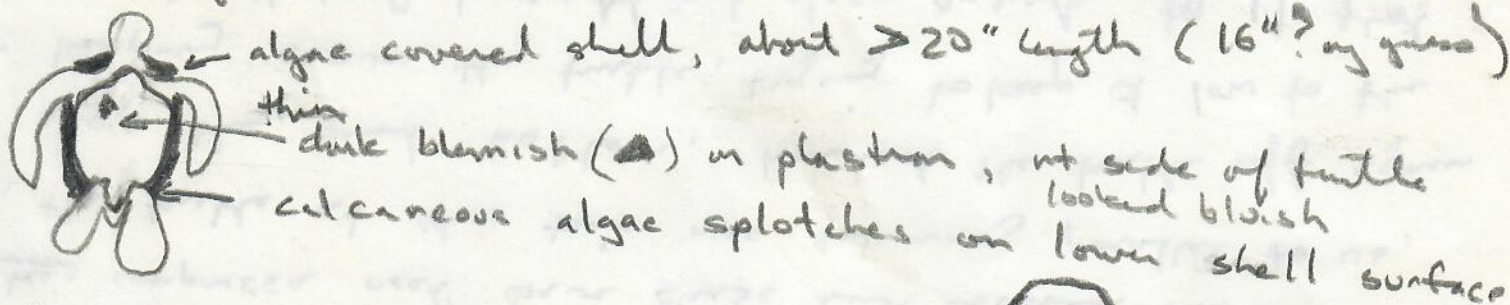 algae covered shell, about >20" length (16"? my guess)
thin
dark blemish (▲) on plastron, rt side of turtle
looked bluish
calcaneous algae splotches on lower shell surface